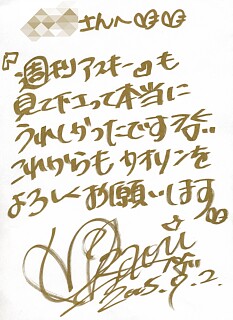 さんへ♡♡
『週刊アスキー』も
見て下さって本当に
うれしかったですょ
これからもカオリンを
よろしくお願いします
Kaori
2005.9.2.